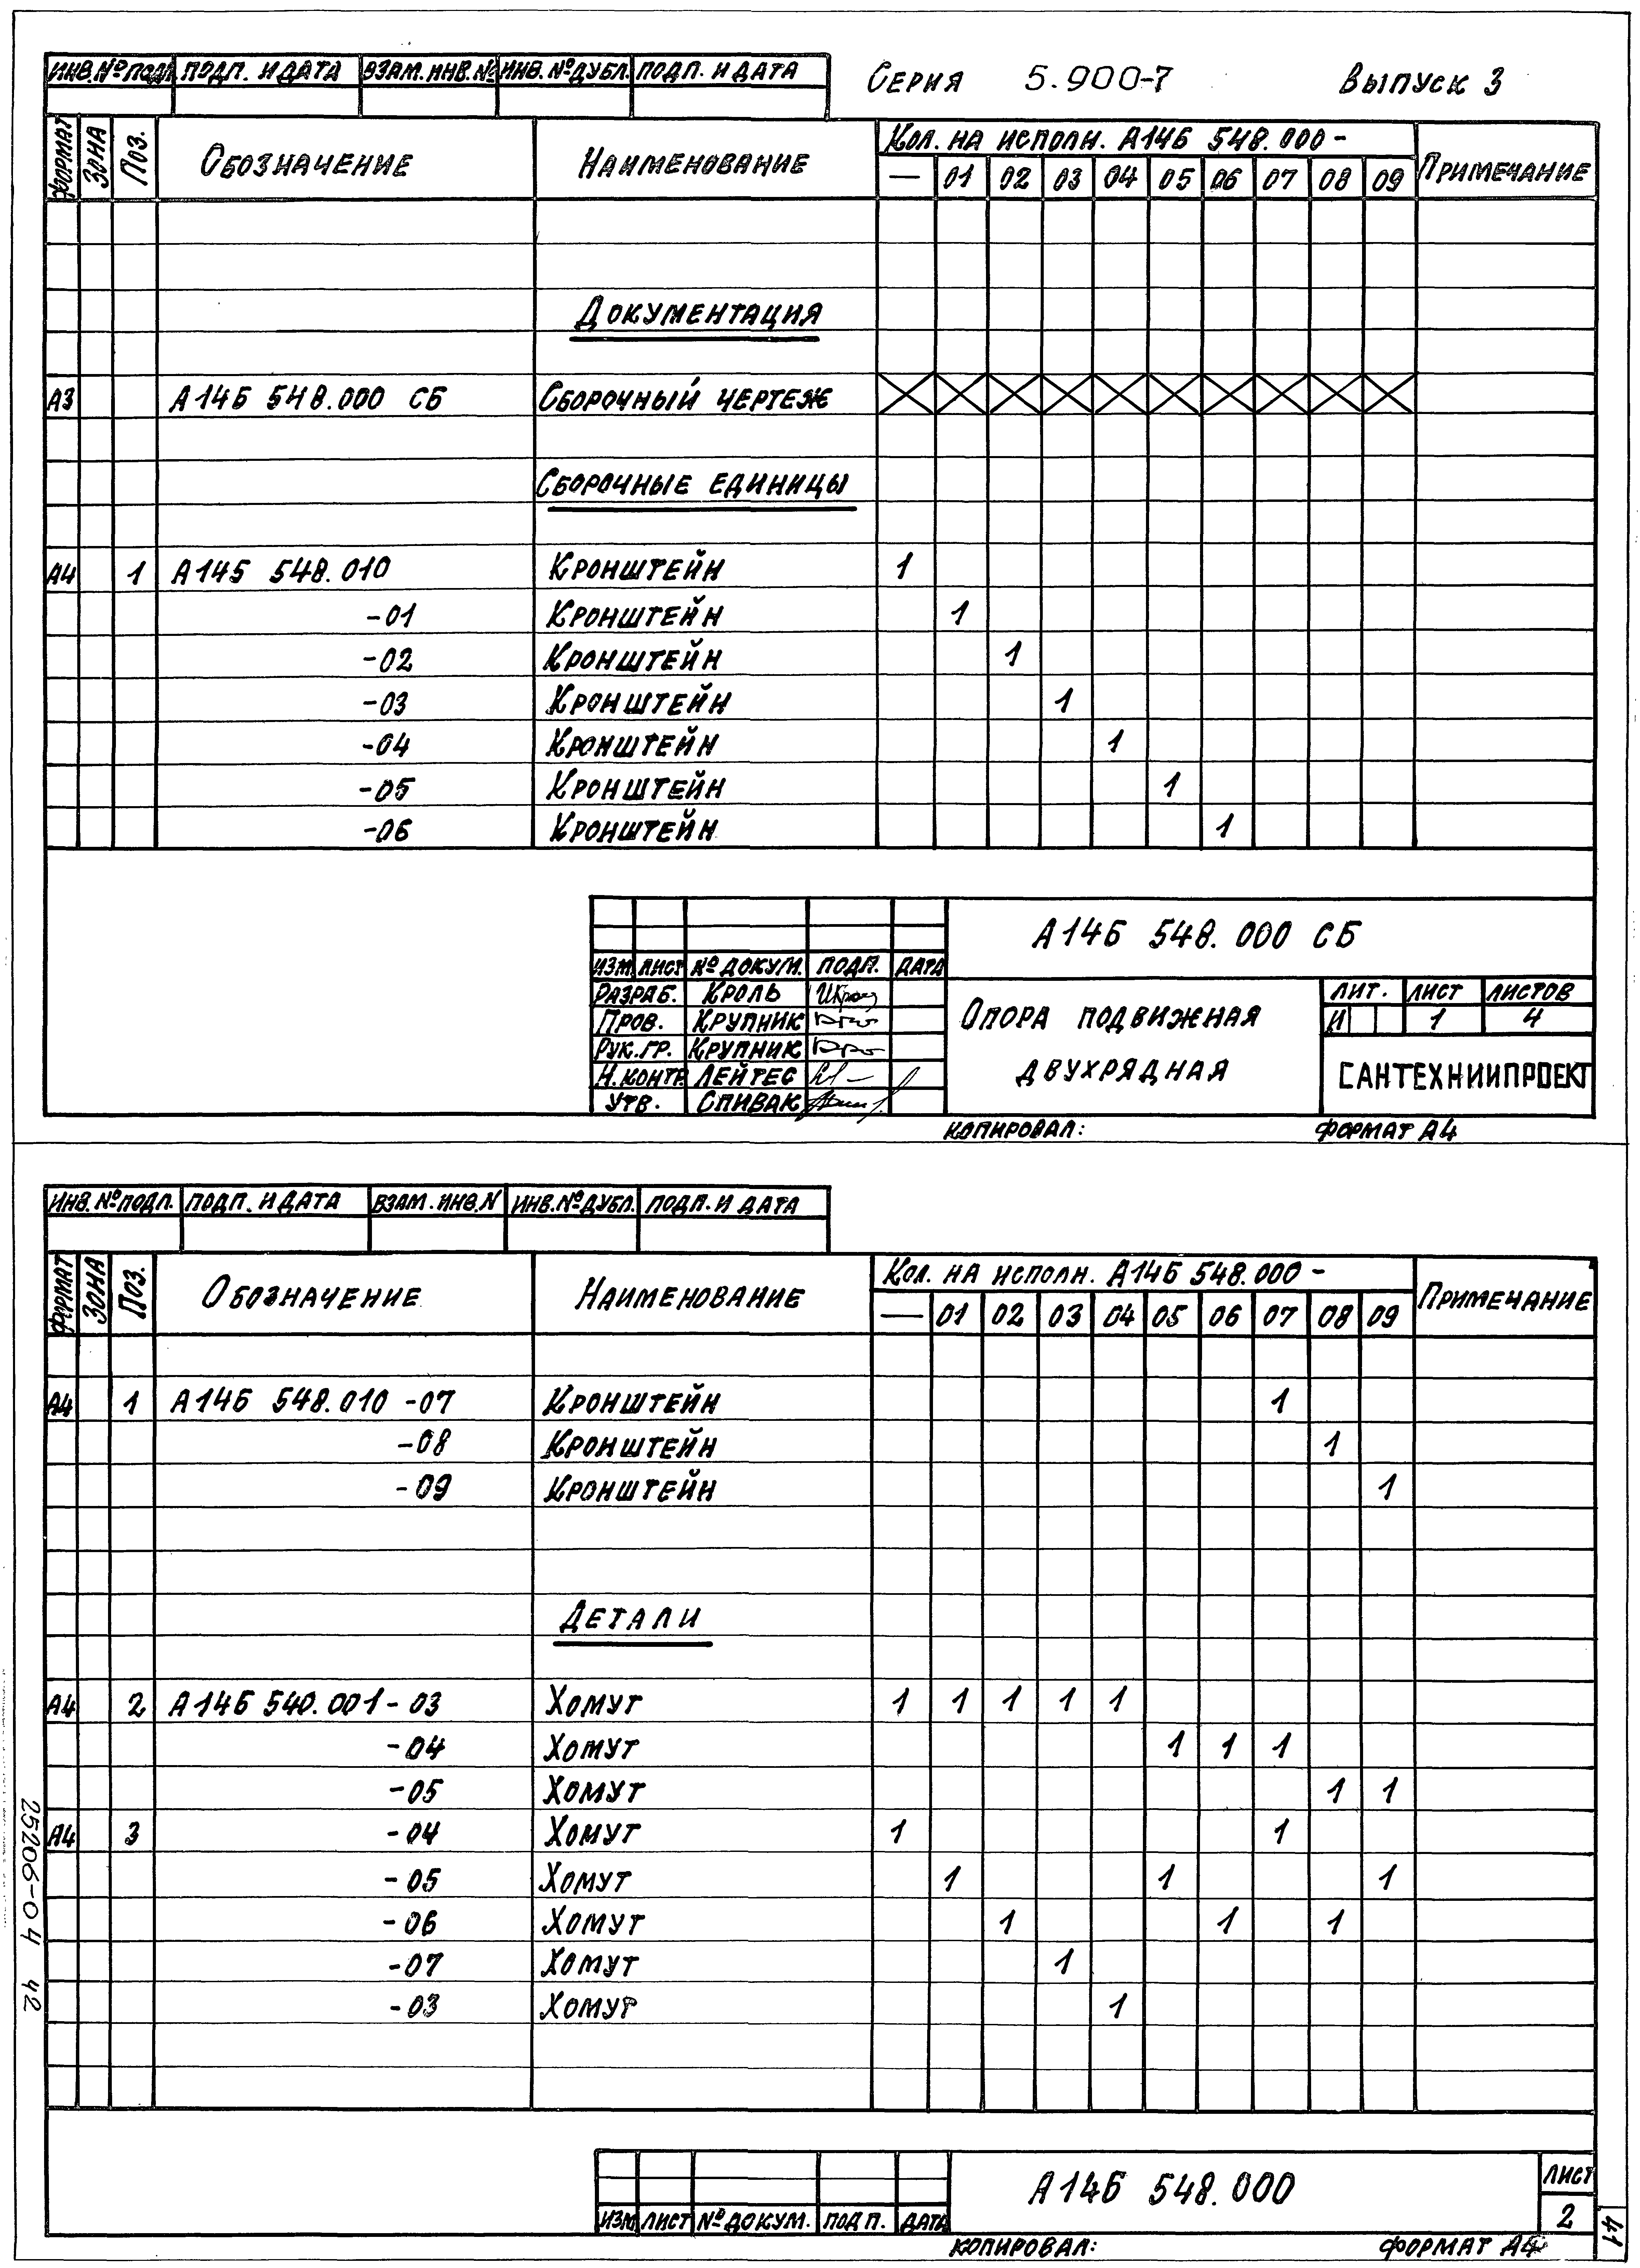 ИНВ.№ПОДЛ. ПОДП. И ДАТА ВЗАМ. ИНВ.№ ИНВ. №ДУБЛ. ПОДП. И ДАТА СЕРИЯ 5.900-7 ВЫПУСК 3
ФОРМАТ ЗОНА ПОЗ. ОБОЗНАЧЕНИЕ НАИМЕНОВАНИЕ КОЛ. НА ИСПОЛН. А14Б 548.000 - ПРИМЕЧАНИЕ
— 01 02 03 04 05 06 07 08 09
ДОКУМЕНТАЦИЯ
А3 А14Б 548.000 СБ СБОРОЧНЫЙ ЧЕРТЕЖ
СБОРОЧНЫЕ ЕДИНИЦЫ
А4 1 А14Б 548.010 КРОНШТЕЙН 1
-01 КРОНШТЕЙН 1
-02 КРОНШТЕЙН 1
-03 КРОНШТЕЙН 1
-04 КРОНШТЕЙН 1
-05 КРОНШТЕЙН 1
-06 КРОНШТЕЙН 1
А14Б 548. 000 СБ
ИЗМ. ЛИСТ № ДОКУМ. ПОДП. ДАТА
РАЗРАБ. КРОЛЬ
ПРОВ. КРУПНИК
РУК.ГР. КРУПНИК
Н.КОНТР. ЛЕЙТЕС
УТВ. СПИВАК
ОПОРА ПОДВИЖНАЯ
ДВУХРЯДНАЯ
ЛИТ. ЛИСТ ЛИСТОВ
И 1 4
САНТЕХНИИПРОЕКТ
КОПИРОВАЛ: ФОРМАТ А4
ИНВ. №ПОДЛ. ПОДП. И ДАТА ВЗАМ. ИНВ.N ИНВ.№ДУБЛ. ПОДП. И ДАТА
ФОРМАТ ЗОНА ПОЗ. ОБОЗНАЧЕНИЕ НАИМЕНОВАНИЕ КОЛ. НА ИСПОЛН. А14Б 548.000 - ПРИМЕЧАНИЕ
— 01 02 03 04 05 06 07 08 09
А4 1 А14Б 548.010 -07 КРОНШТЕЙН 1
-08 КРОНШТЕЙН 1
-09 КРОНШТЕЙН 1
ДЕТАЛИ
А4 2 А14Б 540.001 - 03 ХОМУТ 1 1 1 1 1
-04 ХОМУТ 1 1 1
-05 ХОМУТ 1 1
А4 3 -04 ХОМУТ 1 1
-05 ХОМУТ 1 1 1
-06 ХОМУТ 1 1 1
-07 ХОМУТ 1
-03 ХОМУТ 1
А14Б 548.000
ИЗМ ЛИСТ № ДОКУМ. ПОДП. ДАТА
ЛИСТ
2
КОПИРОВАЛ: ФОРМАТ А4
25206-04 42
41